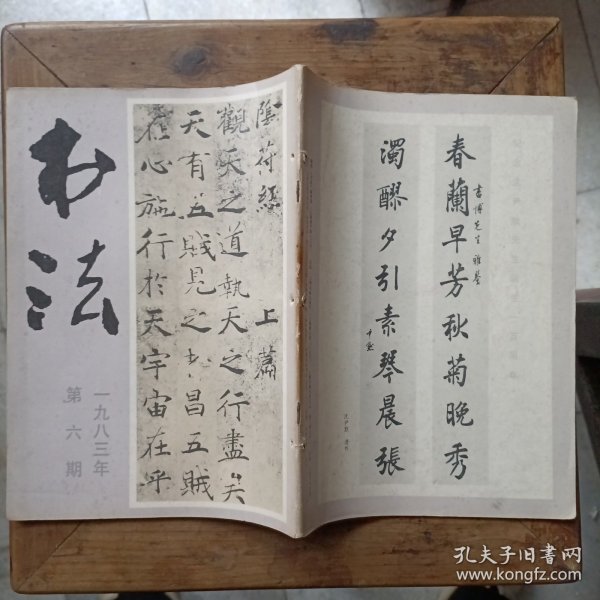 书法
一九八三年
第六期
陰符經 上篇
觀天之道執天之行盡矣
天有五賊見之者昌五賊
在心施行於天宇宙在乎
春蘭早芳秋菊晚秀
言博先生雅鑒
濁醪夕引素琴晨張
尹默
沈尹默 遺作
孔夫子旧书网
www.kongfz.com